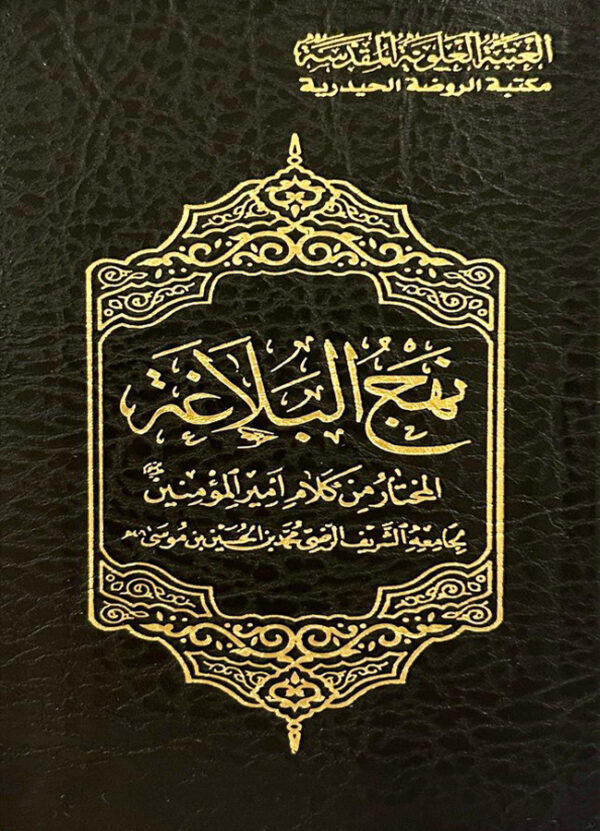 العتبة العلوية المقدسة
مكتبة الروضة الحيدرية
نَهْجُ البَلَاغَةِ
المختار من كلام أمير المؤمنين
لجامعه الشريف الرضي محمد بن الحسين بن موسى